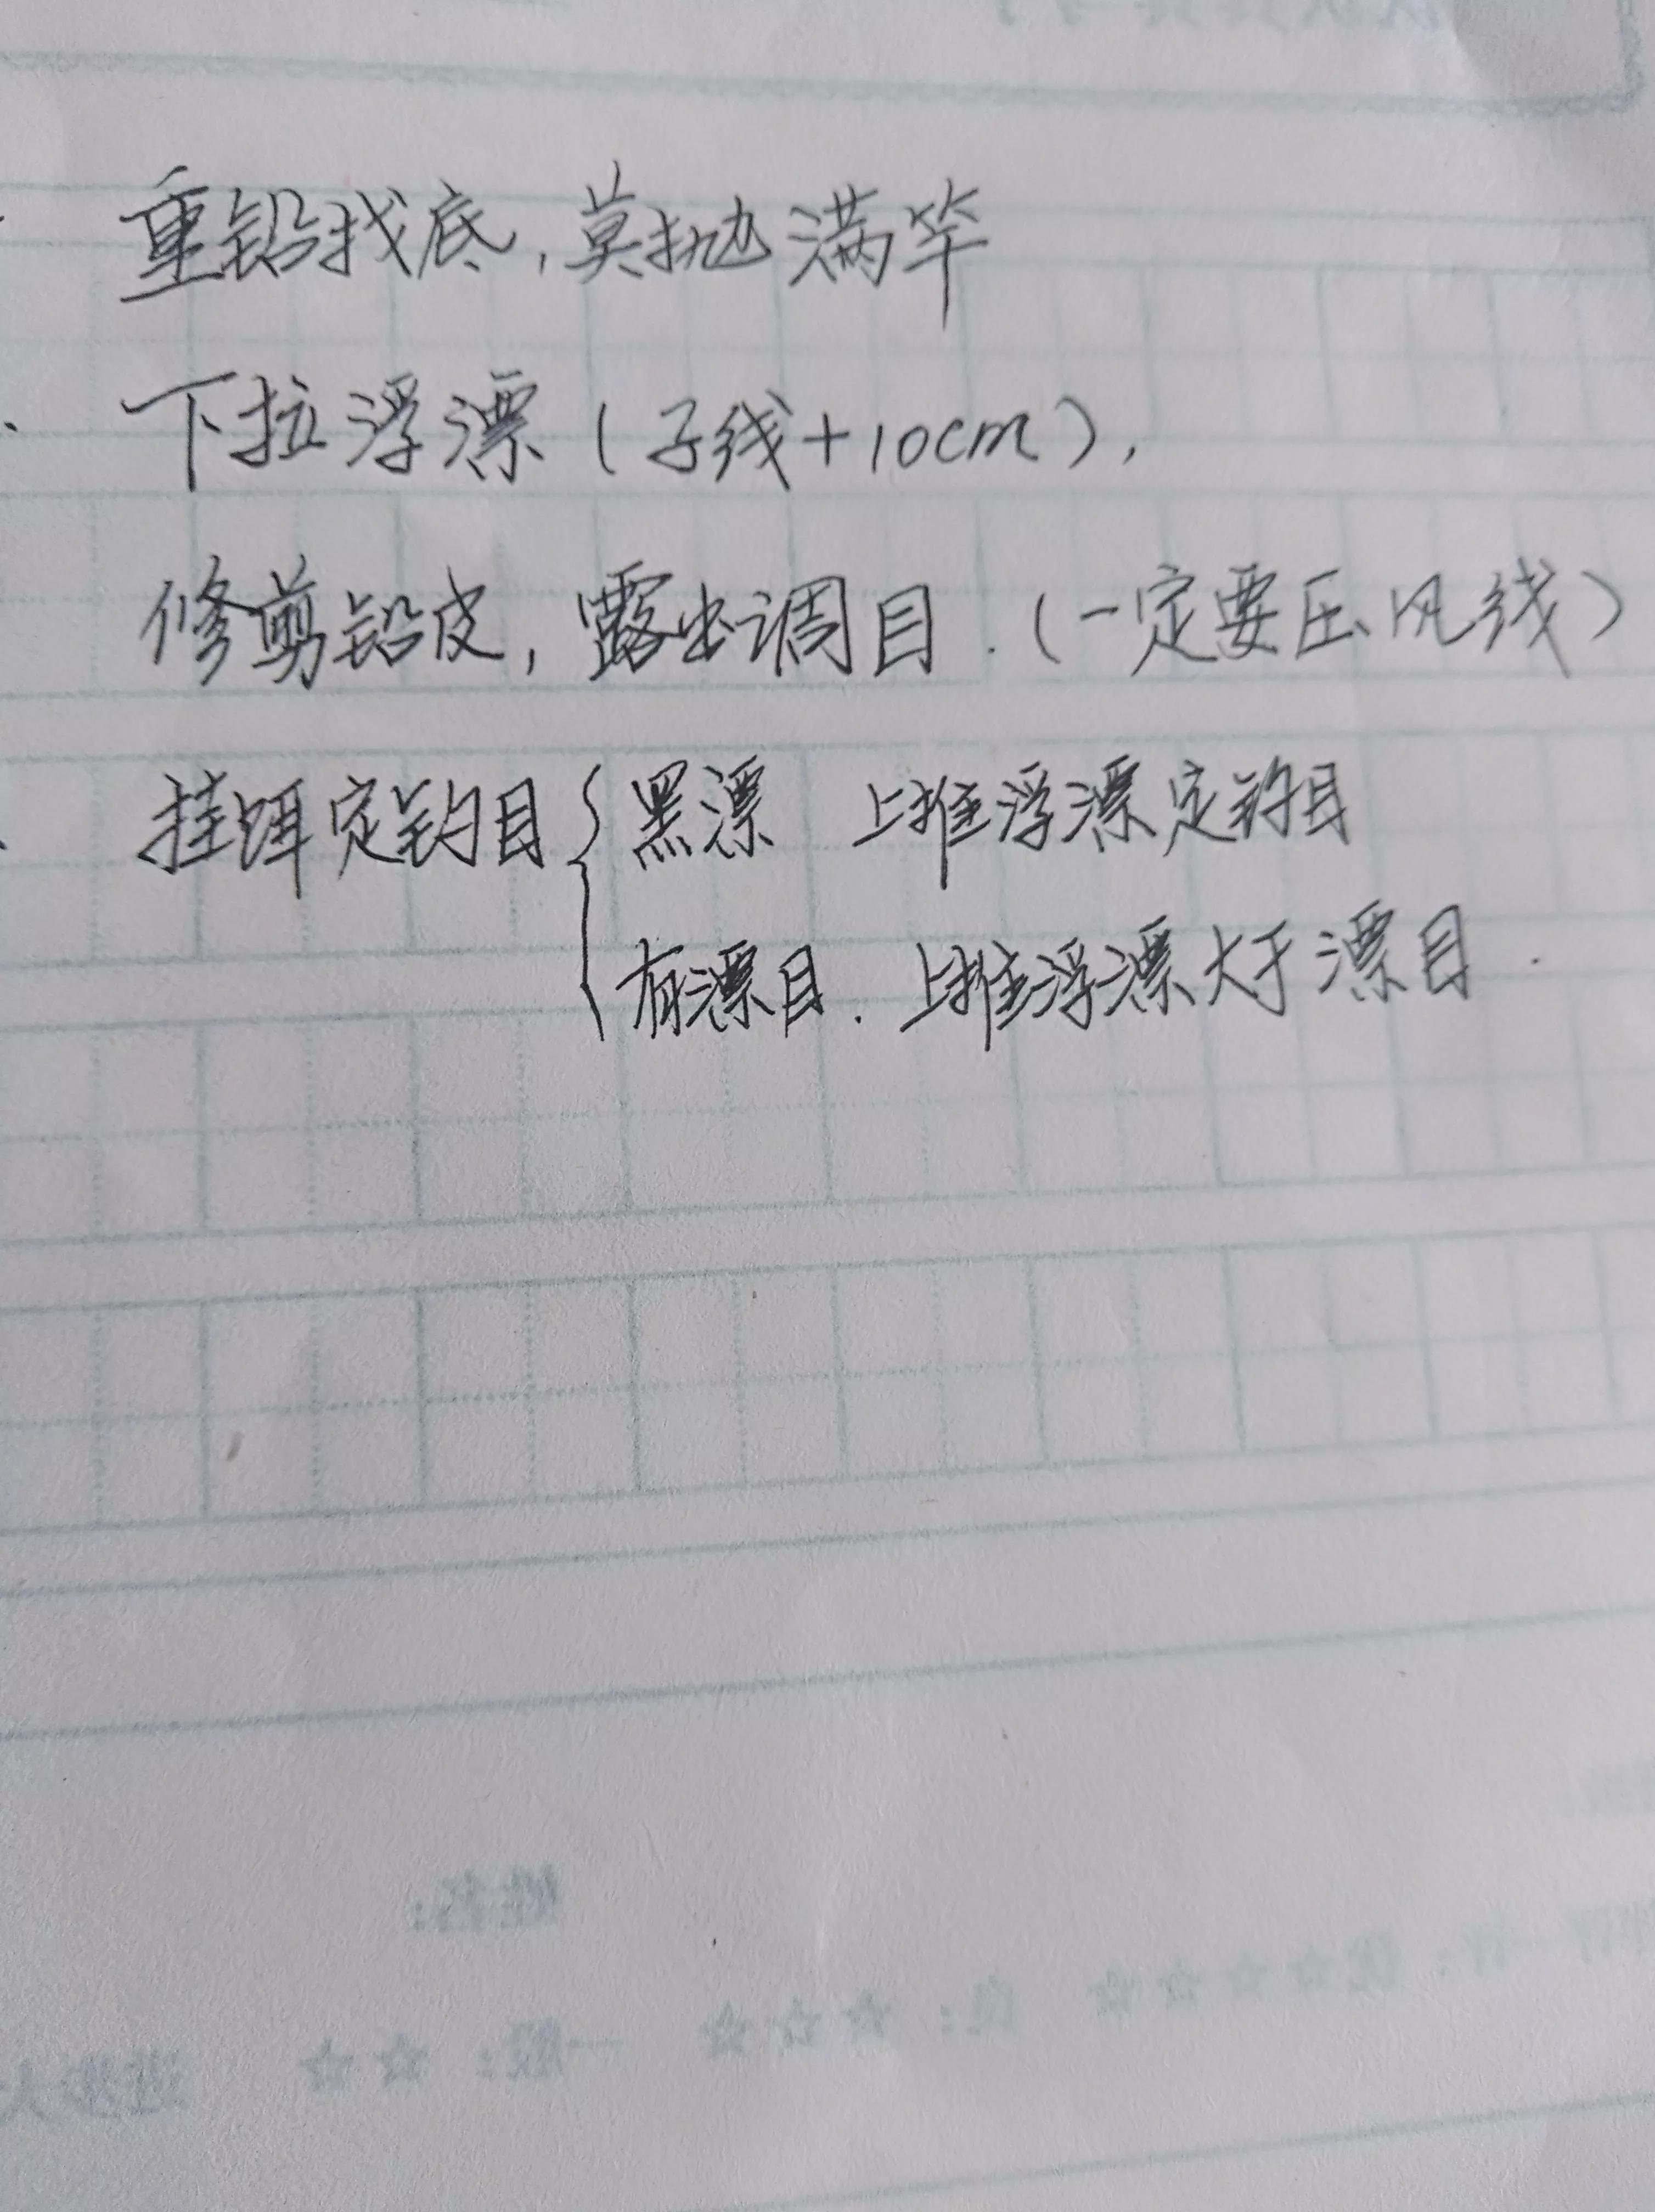 重铅找底,莫抛满竿
下拉浮漂(子线+10cm),
修剪铅皮,露出调目.(一定要压风线)
挂饵定钓目{黑漂 上推浮漂定钓目
有漂目.上推浮漂大于漂目.
姓名: